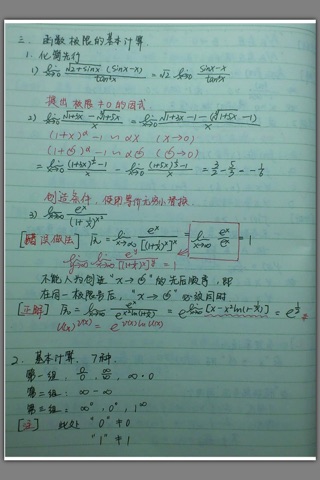 三、函数极限的基本计算.
1. 化简先行
1) lim x→0 √(2+sinx) (sinx-x) / tan³x = √2 lim x→0 (sinx-x) / tan³x
提出极限≠0的因式
2) lim x→0 (√(1+3x) - ³√(1+5x)) / x = lim x→0 (√(1+3x) -1 - (³√(1+5x) -1)) / x
(1+x)^α -1 ~ αx (x→0)
(1+㋡)^α -1 ~ α㋡ (㋡→0)
= lim x→0 ((1+3x)^½ -1) / x - lim x→0 ((1+5x)^⅓ -1) / x = 3/2 - 5/3 = -1/6
创造条件,使用等价无穷小替换.
3) lim x→∞ e^x / (1+1/x)^x²
[错误做法] 原 = lim x→∞ e^x / [(1+1/x)^x]^x = lim x→∞ e^x / e^x = 1
不能人为创造“x→㋡”的先后顺序,即
在同一极限号后,“x→㋡”必须同时
[正解] 原 = lim x→∞ e^x / e^(x²ln(1+1/x)) = e^(lim x→∞ [x-x²ln(1+1/x)]) = e^½
u(x)^v(x) = e^(v(x)lnu(x))
2. 基本计算. 7种.
第一组. 0/0, ∞/∞, ∞·0
第二组: ∞-∞
第三组: ∞⁰, 0⁰, 1^∞
[注] 此处 “0”≠0
“1”≠1